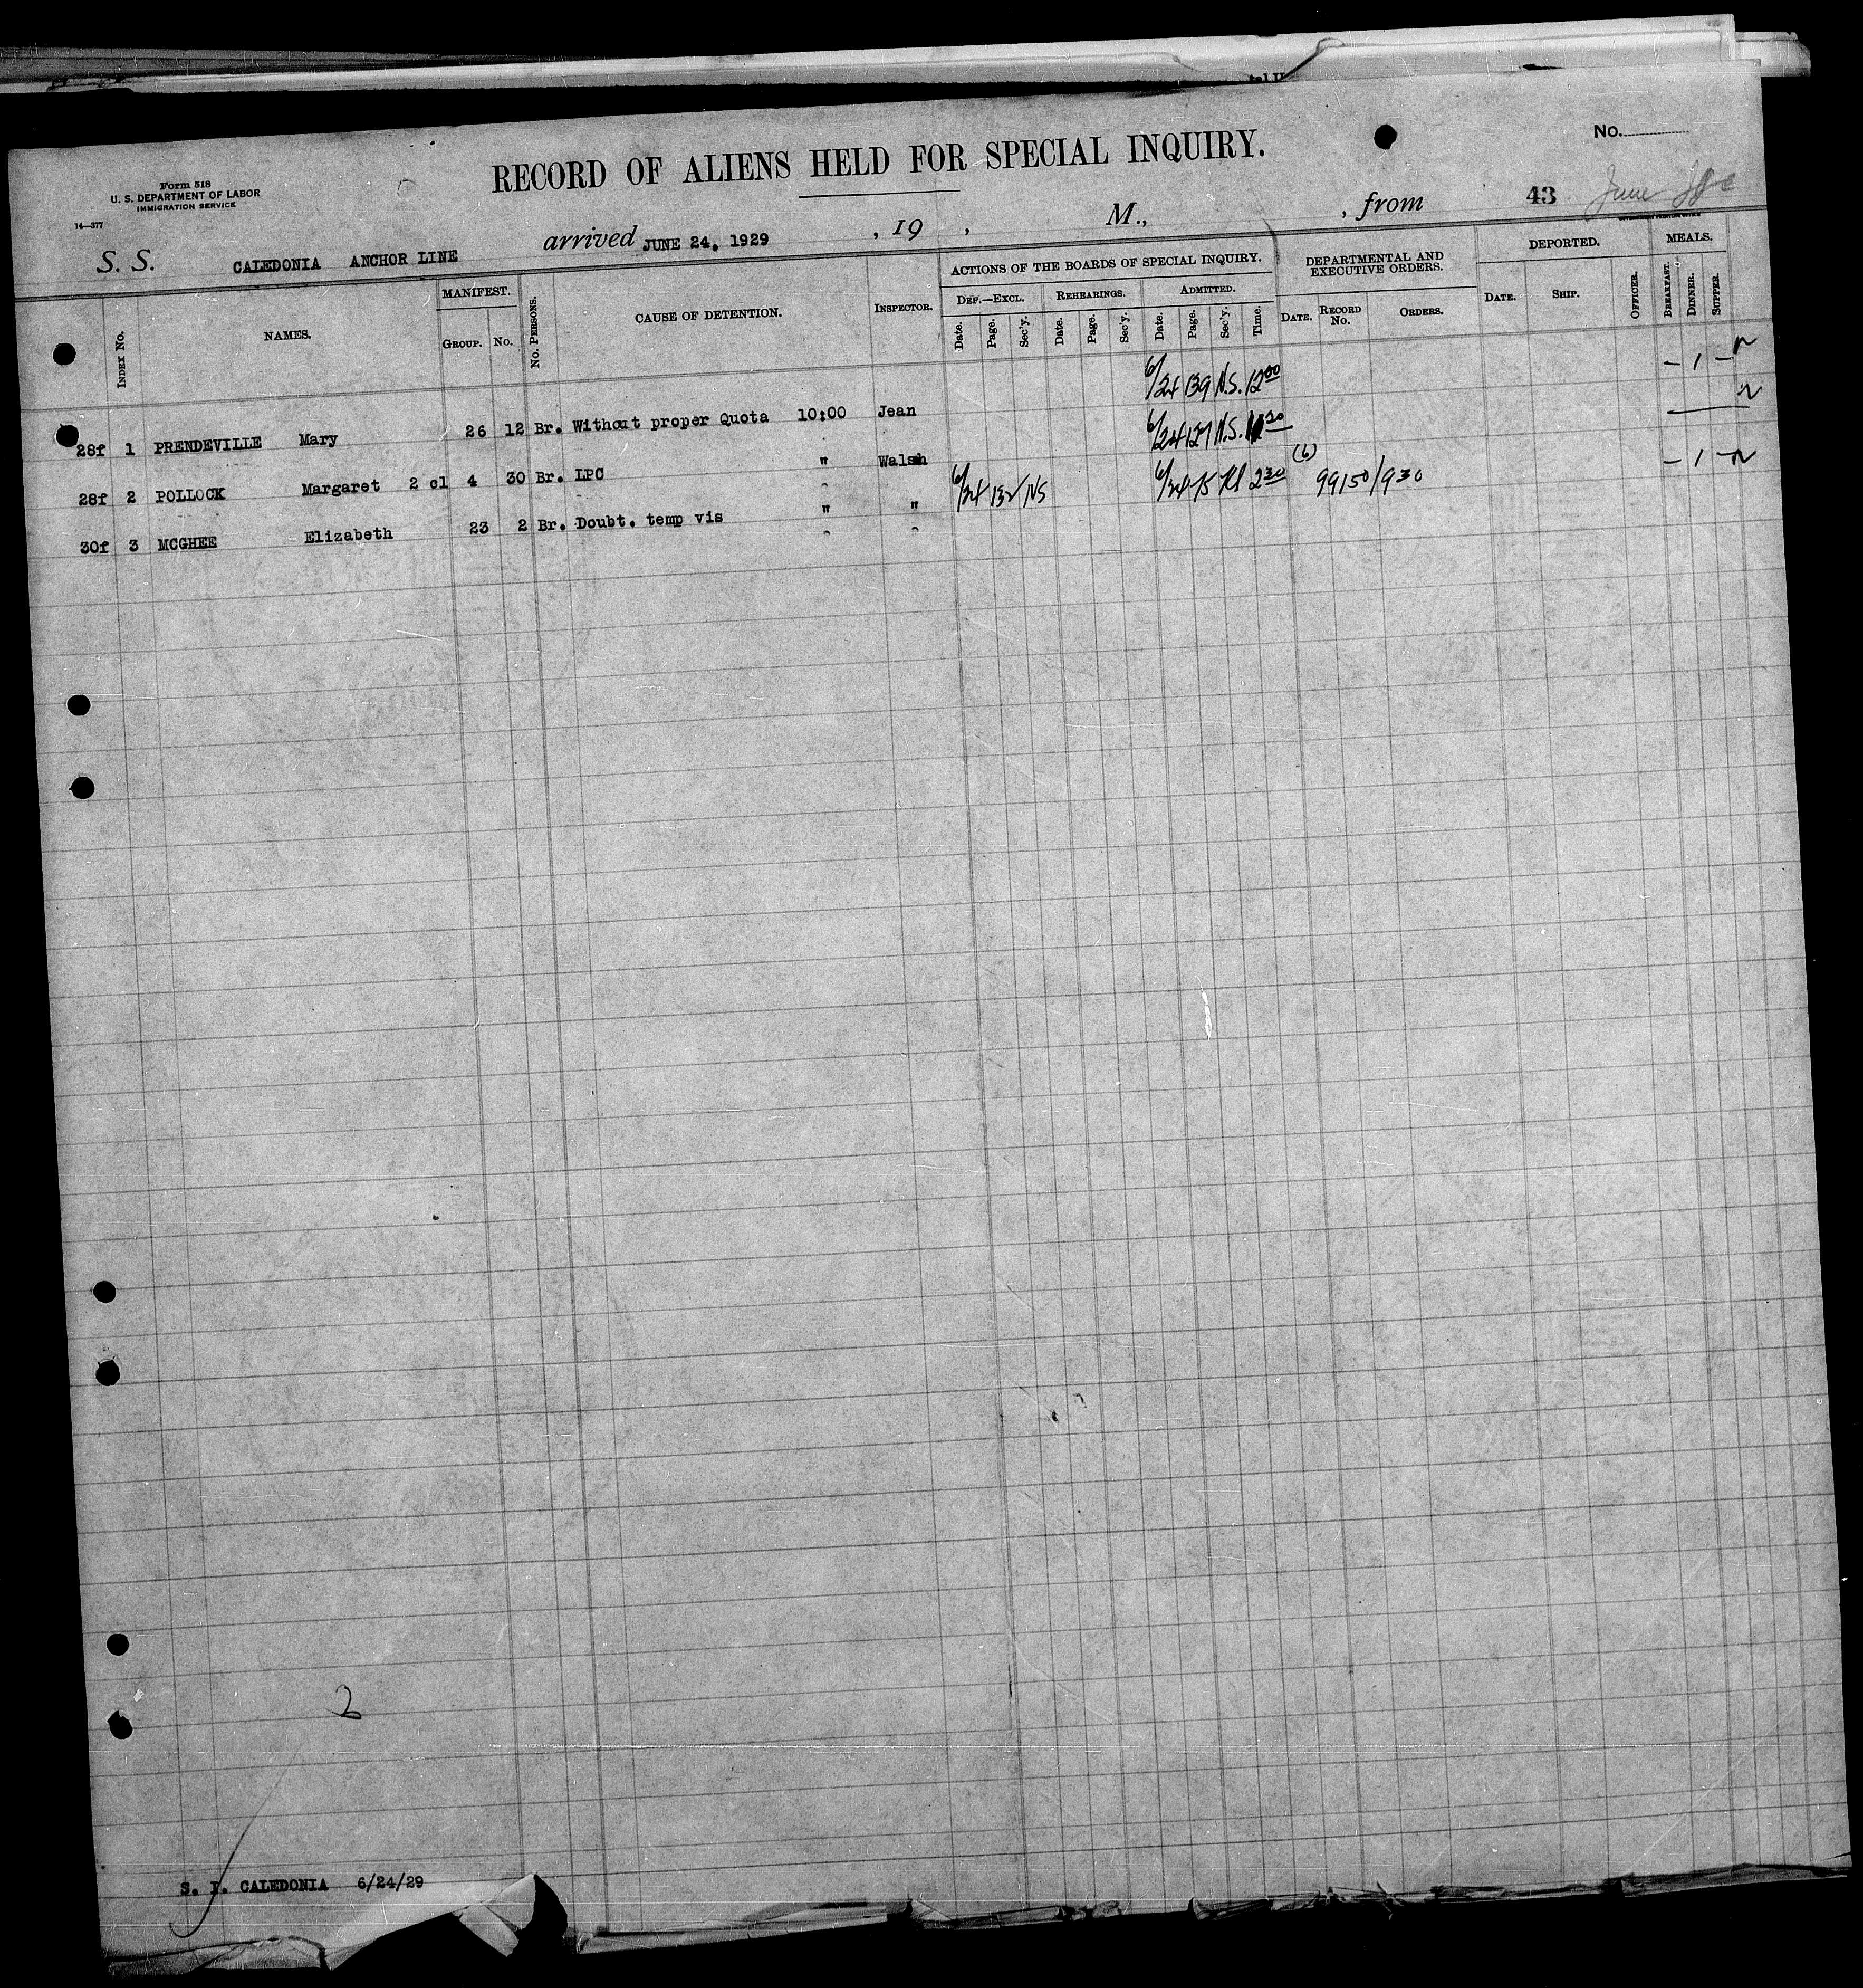 RECORD OF ALIENS HELD FOR SPECIAL INQUIRY.
No.
Form 518
U. S. DEPARTMENT OF LABOR
IMMIGRATION SERVICE
14—377
43 June
S. S. CALEDONIA ANCHOR LINE arrived JUNE 24, 1929 , 19 , M., , from
INDEX No. NAMES. MANIFEST. GROUP. No. No. PERSONS. CAUSE OF DETENTION. INSPECTOR. ACTIONS OF THE BOARDS OF SPECIAL INQUIRY. DEF.—EXCL. Date. Page. Sec'y. REHEARINGS. Date. Page. Sec'y. ADMITTED. Date. Page. Sec'y. Time. DEPARTMENTAL AND EXECUTIVE ORDERS. DATE. RECORD No. ORDERS. DEPORTED. DATE. SHIP. OFFICER. MEALS. BREAKFAST. DINNER. SUPPER.
28f 1 PRENDEVILLE Mary 26 12 Br. Without proper Quota 10:00 Jean 6/24 139 N.S. 12 00 – 1 –
28f 2 POLLOCK Margaret 2 cl 4 30 Br. LPC " Walsh 6/24 127 N.S.
30f 3 MCGHEE Elizabeth 23 2 Br. Doubt. temp vis " " 6/24 132 NS 6/24 2 30 (6) 99150/930 – 1 –
2
S. I. CALEDONIA 6/24/29